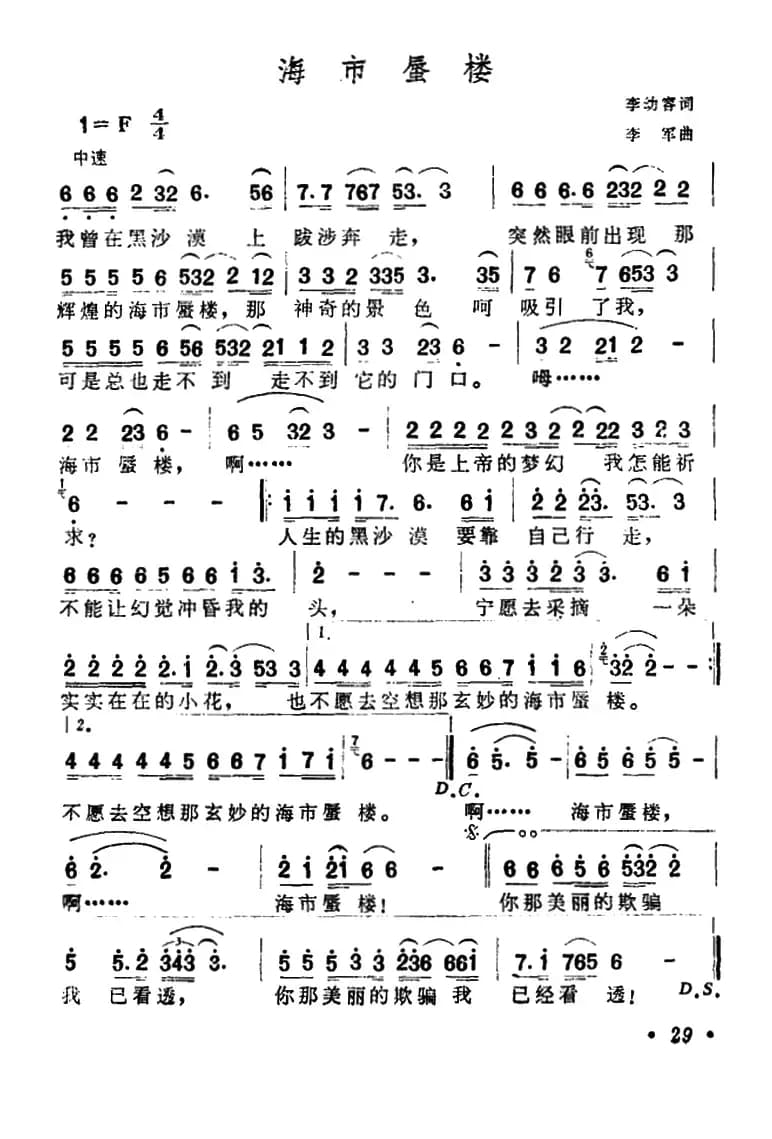 海市蜃楼
李幼容词
1=F 4/4
李军曲
中速
6 6 6 2 32 6· 56 | 7·7 767 53· 3 | 6 6 6·6 232 2 2 |
我曾在黑沙漠上跋涉奔走，突然眼前出现那
5 5 5 5 6 532 2 12 | 3 3 2 335 3· 35 | 7 6 6 7 653 3
辉煌的海市蜃楼，那神奇的景色呵吸引了我，
5 5 5 5 6 56 532 21 1 2 | 3 3 23 6 - | 3 2 21 2 -
可是总也走不到走不到它的门口。 呣……
2 2 23 6 - | 6 5 32 3 - | 2 2 2 2 2 3 2 22 3 2 3
海市蜃楼， 啊…… 你是上帝的梦幻 我怎能祈
1 6 - - - |: i i i i 7· 6· 6 i | 2 2 23· 53· 3
求? 人生的黑沙漠要靠自己行走，
6 6 6 6 5 6 6 i 3· | 2 - - - | 3 3 3 2 3 3· 6 i
不能让幻觉冲昏我的头， 宁愿去采摘一朵
1.
2 2 2 2 2·i 2·3 53 3 | 4 4 4 4 4 5 6 6 7 i i 6 | 2 32 2 - - :|
实实在在的小花，也不愿去空想那玄妙的海市蜃楼。
2.
4 4 4 4 4 5 6 6 7 i 7 i | 7 6 - - - | 6 5· 5 - | 6 5 6 5 5 -
D.C.
不愿去空想那玄妙的海市蜃楼。 啊…… 海市蜃楼，
6 2· 2 - | 2 i 2i 6 6 - | 6 6 6 5 6 532 2
啊…… 海市蜃楼! 你那美丽的欺骗
5 5·2 343 3· | 5 5 5 3 3 236 66i | 7·i 765 6 -
我已看透， 你那美丽的欺骗我已经看透!
D.S.
• 29 •